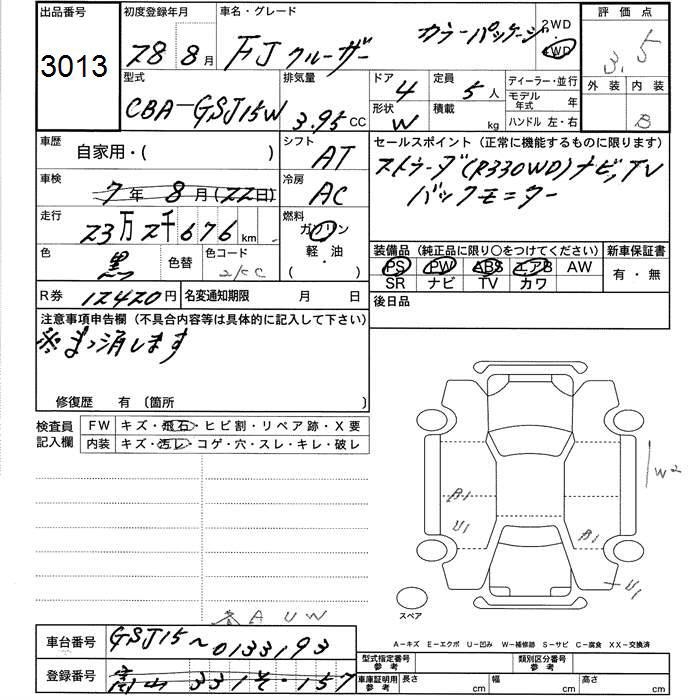 出品番号
3013
初度登録年月
28 8月
車名・グレード
FJクルーザー カラーパッケージ
2WD
4WD
評価点
3.5
外装 内装
B
型式
CBA-GSJ15W
排気量
3.95CC
ドア
4
形状
W
定員
5人
積載
kg
ディーラー・並行
モデル年式 年
ハンドル 左・右
車歴
自家用・( )
シフト
AT
車検
7年 8月(22日)
冷房
AC
走行
23万2千676km
燃料
ガソリン
軽・油
・( )
色
黒
色替
色コード
R券 12420円
名変通知期限 月 日
セールスポイント(正常に機能するものに限ります)
ストラーダ(R330WD)ナビ,TV
バックモニター
装備品(純正品に限り○をつけてください)
PS PW ABS エアB AW
SR ナビ TV カワ
新車保証書
有・無
後日品
注意事項申告欄(不具合内容等は具体的に記入して下さい)
※まっ消します
修復歴 有〔箇所 〕
検査員
記入欄
FW キズ・飛石・ヒビ割・リペア跡・X要
内装 キズ・汚レ・コゲ・穴・スレ・キレ・破レ
A1
U1
A1
U1
W2
スペア
A U W
A-キズ E-エクボ U-凹み W-補修跡 S-サビ C-腐食 XX-交換済
車台番号
GSJ15~0133193
登録番号
富山 331 そ・157
型式指定番号
参考
類別区分番号
参考
車庫証明用
参考
長さ cm
幅 cm
高さ cm